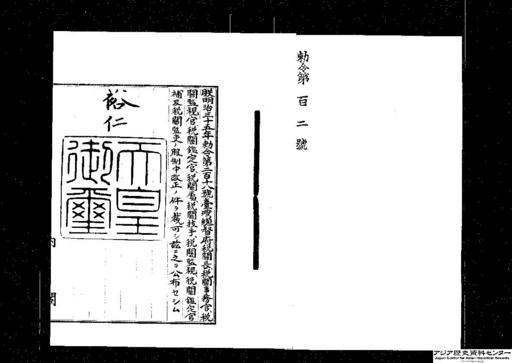 勅令第百二號
朕明治三十五年勅令第二百十八號臺灣總督府税關長税關事務官税
關監視官税關鑑定官税關屬税關技手税關監視税關鑑定官
補及税關監吏ノ服制中改正ノ件ヲ裁可シ茲ニ之ヲ公布セシム
裕仁
天皇御璽
内閣
アジア歴史資料センター
Japan Center for Asian Historical Records